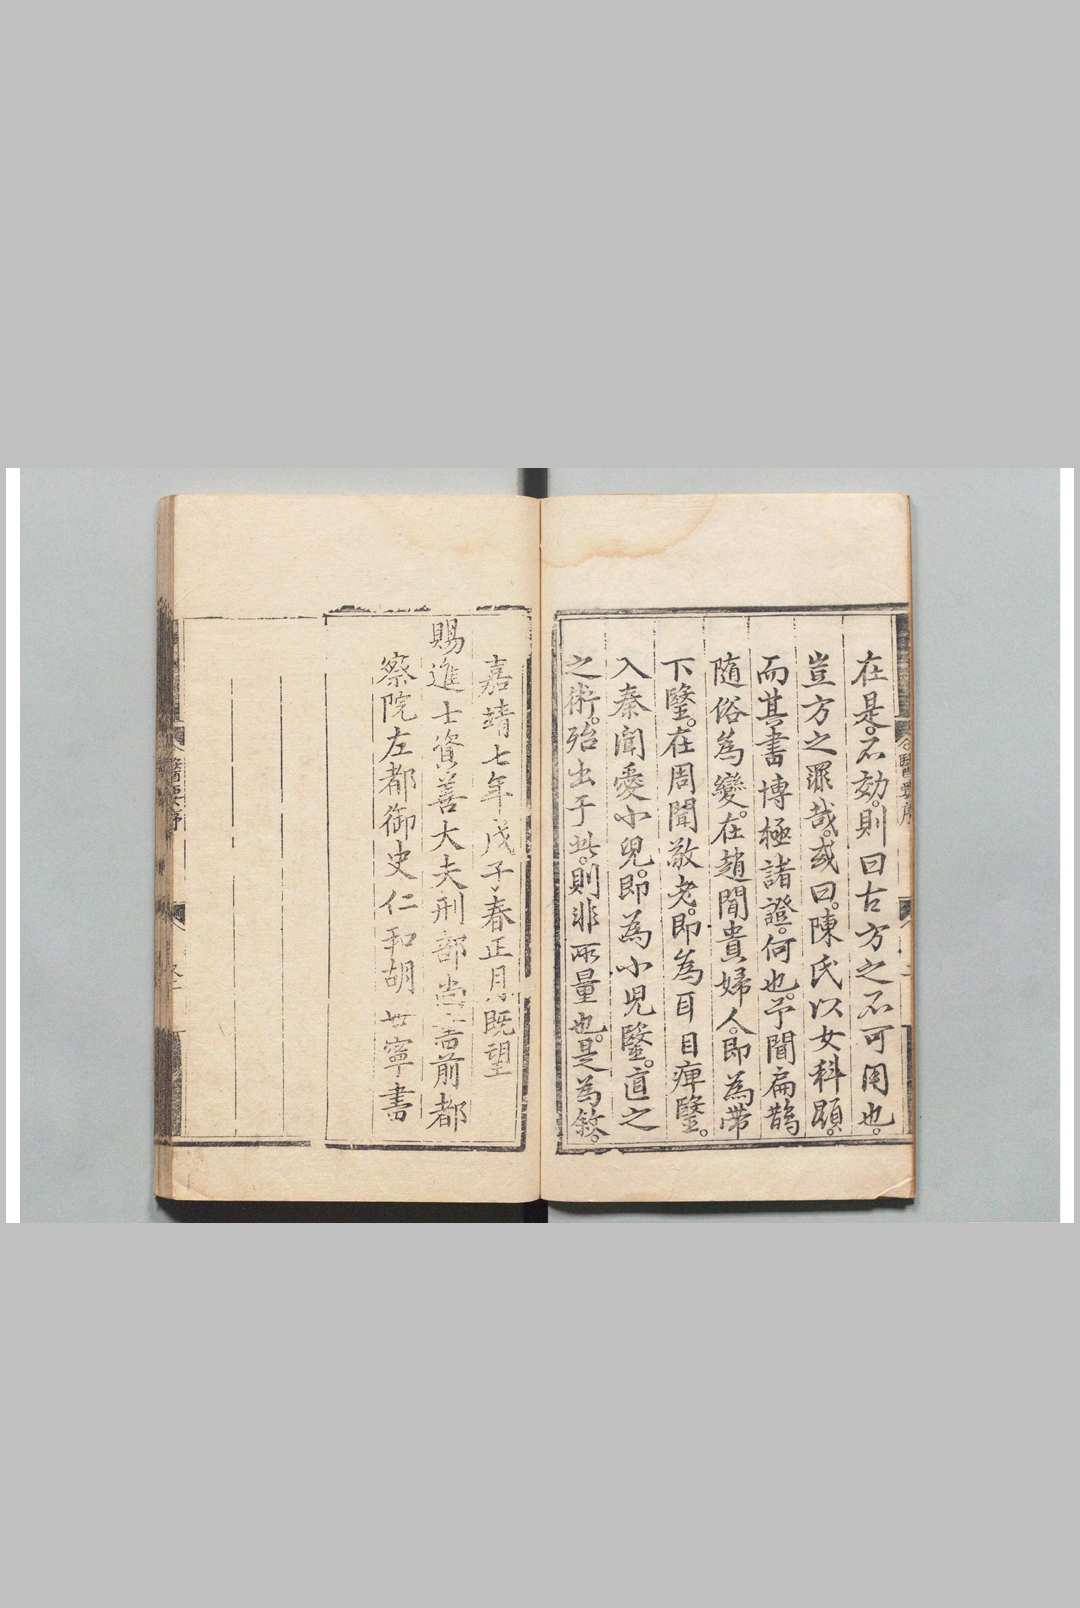 在是。不効。則曰古方之不可用也。
豈方之罪哉。或曰。陳氏以女科顯。
而其書博極諸證。何也。予聞扁鵲
隨俗為變。在趙聞貴婦人。即為帶
下毉。在周聞敬老。即為耳目痺毉。
入秦聞愛小兒。即為小兒毉。直之
之術。殆出于此。則非所量也。是為敘。
嘉靖七年戊子春正月既望
賜進士資善大夫刑部尚書前都
察院左都御史仁和胡世寧書